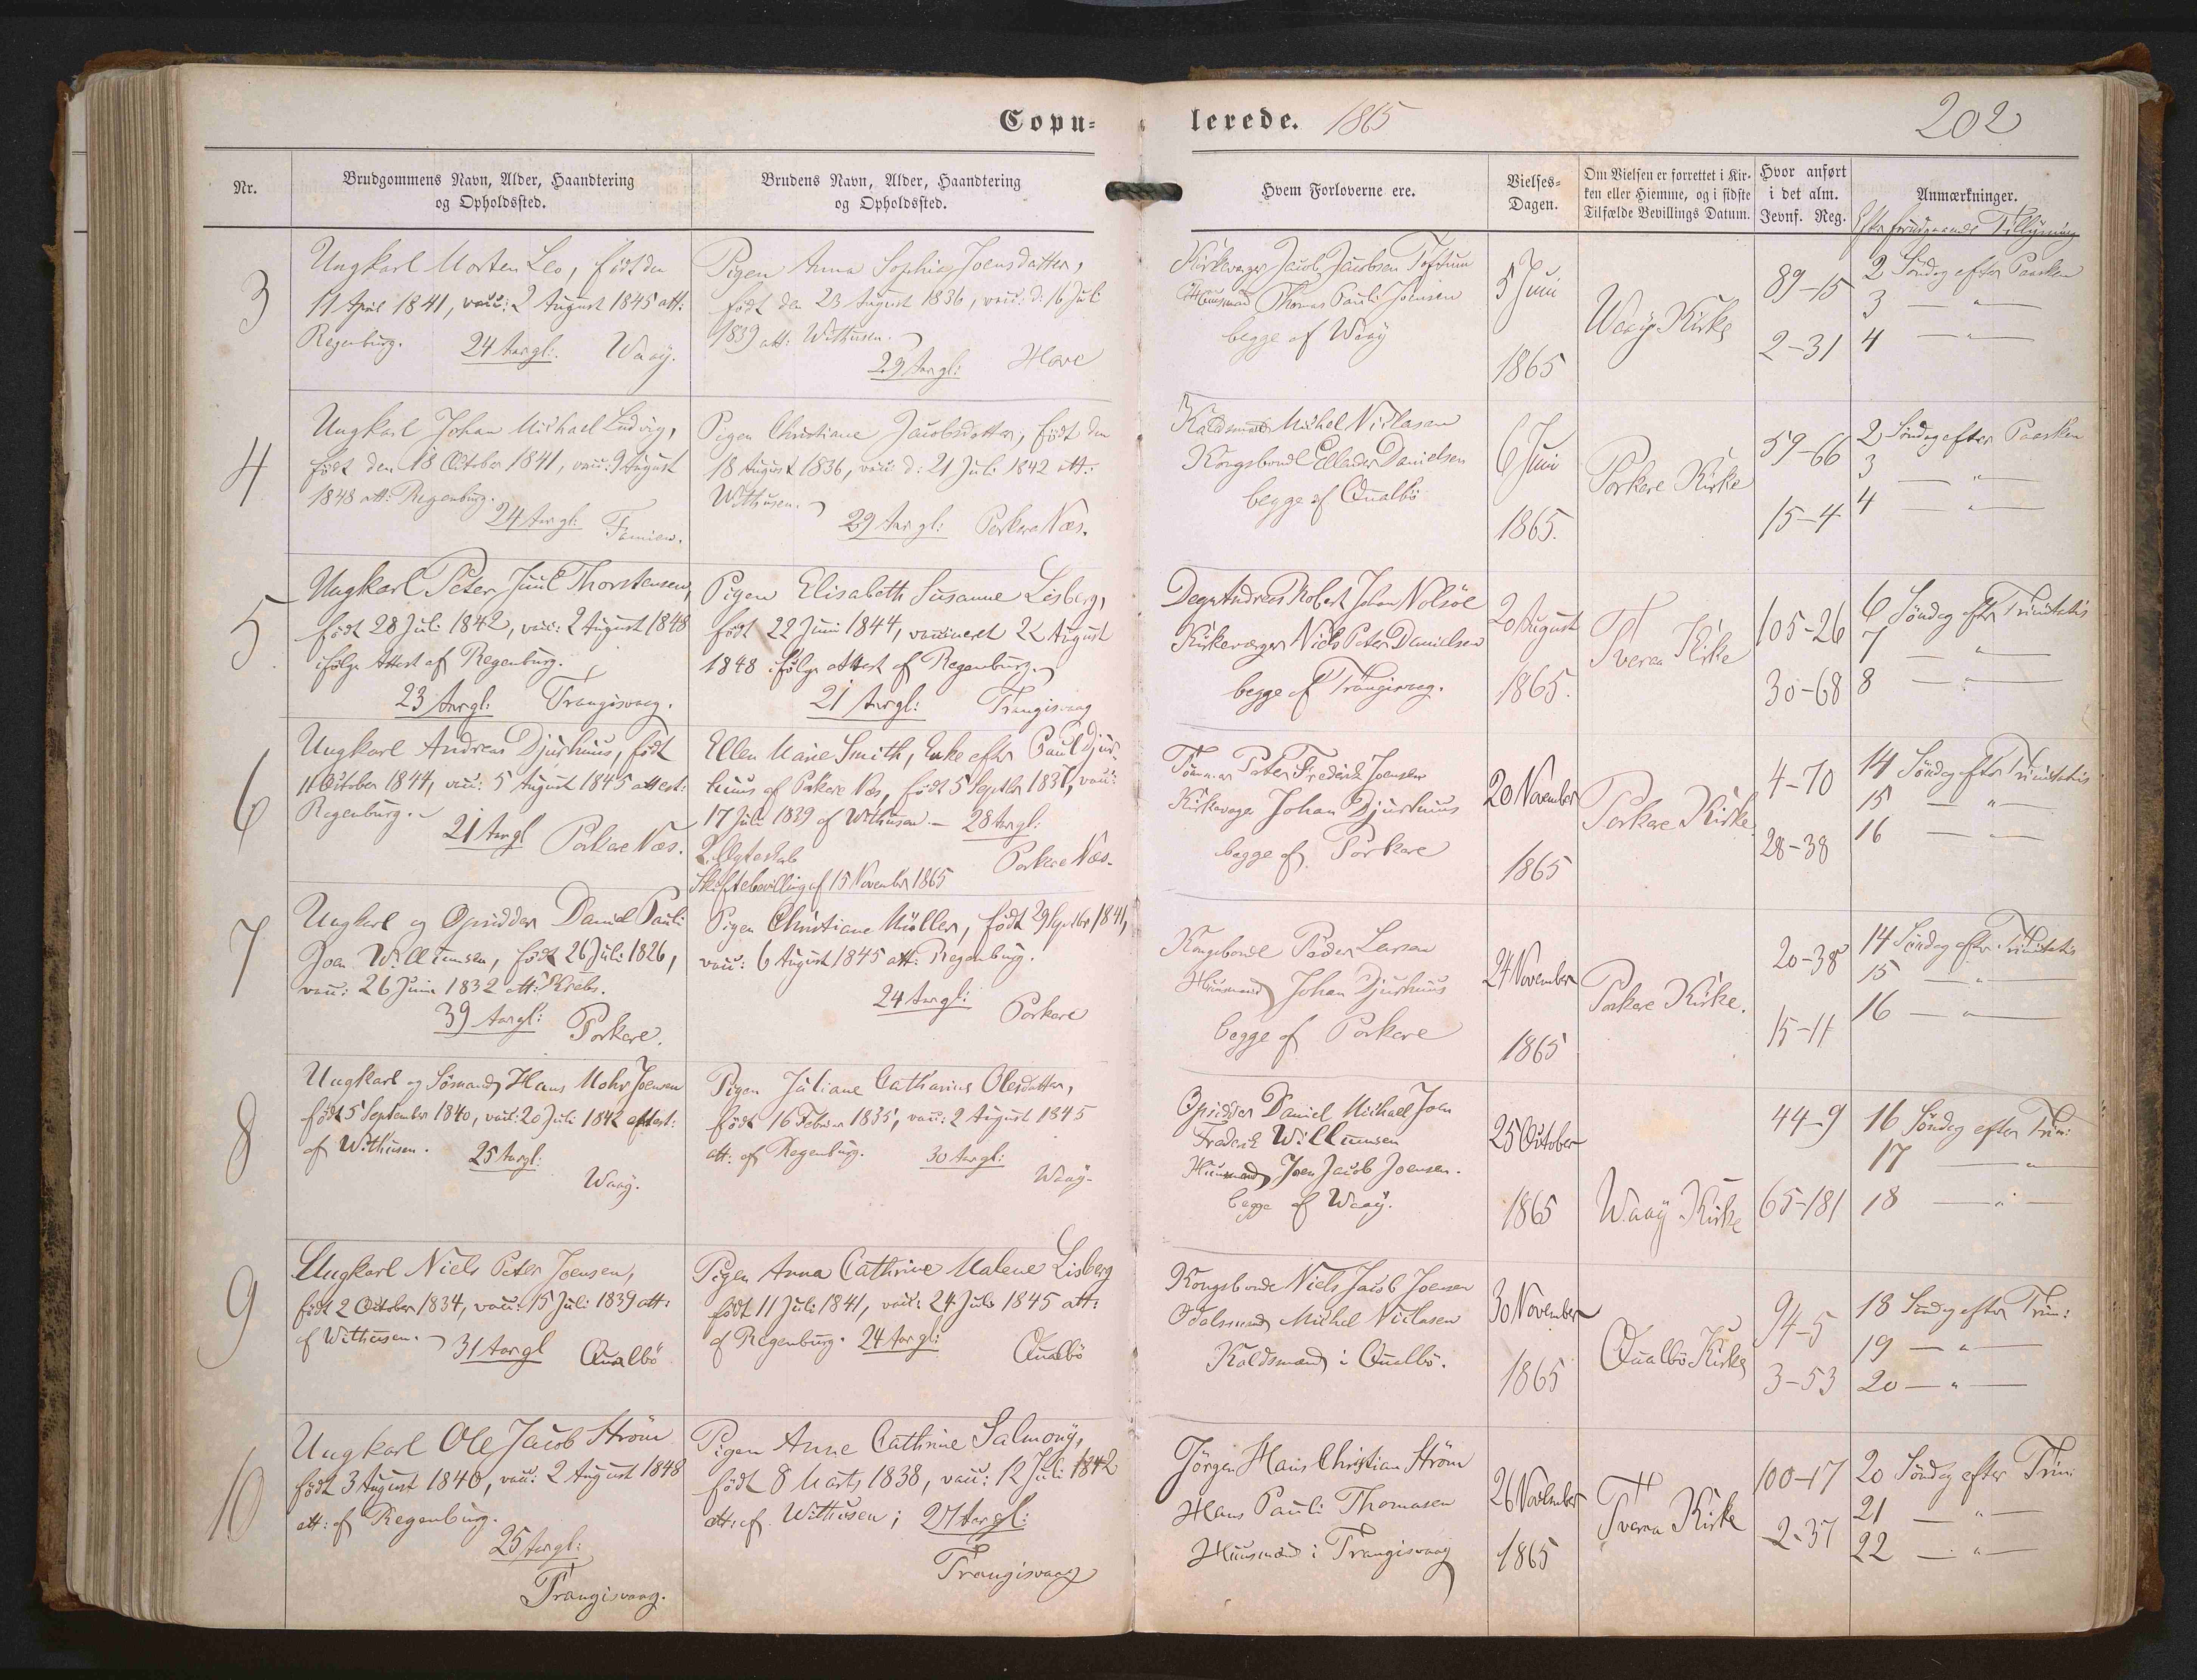 Copu-
lerede. 1865
202
Nr.
Brudgommens Navn, Alder, Haandtering
og Opholdssted.
Brudens Navn, Alder, Haandtering
og Opholdssted.
Hvem Forloverne ere.
Vielses-
Dagen.
Om Vielsen er forrettet i Kir-
ken eller Hiemme, og i sidste
Tilfælde Bevillings Datum.
Hvor anført
i det alm.
Jevnf. Reg.
Anmærkninger.
Efter forudgaaende Tillysning
3
Ungkarl Morten Leo, født den
11 April 1841, vacc: 2 August 1845 att:
Regenburg. 24 Aar gl: Waaÿ.
Pigen Anna Sophie Joensdatter,
født den 23 August 1836, vacc: d: 16 Juli
1839 att: Withusen.
29 Aar gl: Hove
Kirkeværger Jacob Jacobsen Toftum
Huusmand Thomas Pauli Joensen
begge af Waaÿ
5 Juni
1865
Waaÿ Kirke
89-15
2-31
2 Søndag efter Paasken
3 — " —
4 — " —
4
Ungkarl Johan Michael Ludvig,
født den 18 October 1841, vacc: 9 August
1848 att: Regenburg.
24 Aar gl: Famien.
Pigen Christiane Jacobsdatter, født den
18 August 1836, vacc: d: 21 Juli 1842 att:
Withusen.
29 Aar gl: Porkere Næs.
Kaldsmand Michel Niclasen
Kongsbonde Ellender Danielsen
begge af Qualbö
6 Juni
1865.
Porkere Kirke
59-66
15-4
2 Søndag efter Paasken
3 — " —
4 — " —
5
Ungkarl Peter Juul Thorstensen,
født 28 Juli 1842, vacc: 2 August 1848
ifølge Attest af Regenburg.
23 Aar gl: Trangisvaag.
Pigen Elisabeth Susanne Lisberg,
født 22 Juni 1844, vaccineret 22 August
1848 ifølge attest af Regenburg.
21 Aar gl: Trangisvaag
Degn Andreas Robert Johan Nolsöe
Kirkeværger Niels Peter Danielsen
begge af Trangisvaag.
20 August
1865.
Tveraa Kirke
105-26
30-68
6 Søndag efter Trinitatis
7 — " —
8 — " —
6
Ungkarl Andreas Djurhuus, født
11 October 1844, vacc: 5 August 1845 attest:
Regenburg.
21 Aar gl Porkere Næs.
Ellen Marie Smith, Enke efter Paul Djur-
huus af Porkere Næs, født 5 Septbr 1837, vacc:
17 Juli 1839 af Withusen. — 28 Aar gl:
2. Ægteskab Porkere Næs.
Skiftebevilling af 15 November 1865
Tømmer Peter Frederik Joensen
Kirkeværger Johan Djurhuus
begge af Porkere
20 November
1865
Porkere Kirke
4-70
28-38
14 Søndag efter Trinitatis
15 — " —
16 — " —
7
Ungkarl og Opsidder Daniel Pauli
Joen Willumsen, født 26 Juli 1826,
vacc: 26 Juni 1832 att: Krebs.
39 Aar gl: Porkere.
Pigen Christiane Müller, født 29 Septbr 1841,
vacc: 6 August 1845 att: Regenburg.
24 Aar gl: Porkere
Kongsbonde Peder Larsen
Huusmand Johan Djurhuus
begge af Porkere
24 November
1865
Porkere Kirke.
20-38
15-11
14 Søndag efter Trinitatis
15 — " —
16 — " —
8
Ungkarl og Sömand Hans Mohr Joensen
født 5 September 1840, vacc: 20 Juli 1842 attest:
af Withusen. 25 Aar gl:
Waaÿ.
Pigen Juliane Catharine Olesdatter,
født 16 Februar 1835, vacc: 2 August 1845
att: af Regenburg. 30 Aar gl:
Waaÿ.
Opsidder Daniel Michael Joen
Frederik Willumsen
Huusmand Joen Jacob Joensen.
begge af Waaÿ.
25 October
1865
Waaÿ Kirke
44-9
65-181
16 Søndag efter Trin:
17 — " —
18 — " —
9
Ungkarl Niels Peter Joensen,
født 2 October 1834, vacc: 15 Juli 1839 att:
af Withusen. 31 Aar gl Qualbö
Pigen Anna Cathrine Malene Lisberg
født 11 Juli 1841, vacc: 24 Juli 1845 att:
af Regenburg. 24 Aar gl:
Qualbö
Kongsbonde Niels Jacob Joensen
Odelsmand Michel Niclasen
Kaldsmand i Qualbö.
30 November
1865
Qualbö Kirke
94-5
3-53
18 Søndag efter Trin:
19 — " —
20 — " —
10
Ungkarl Ole Jacob Ström
født 3 August 1840, vacc: 2 August 1848
att: af Regenburg.
25 Aar gl:
Trangisvaag.
Pigen Anne Cathrine Salmonÿ,
født 8 Marts 1838, vacc: 12 Juli 1842
att: af Withusen; 27 Aar gl:
Trangisvaag
Jörgen Hans Christian Ström
Hans Pauli Thomasen
Huusmænd i Trangisvaag
26 November
1865
Tveraa Kirke
100-17
2-37
20 Søndag efter Trin:
21 — " —
22 — " —